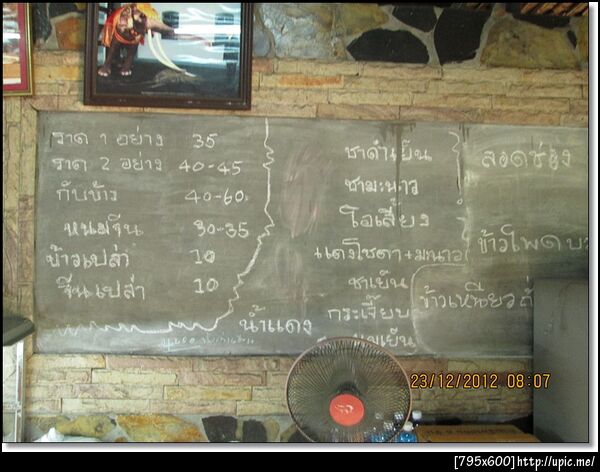 ราด 1 อย่าง 35
ราด 2 อย่าง 40-45
กับข้าง 40-60
หนมจีน 30-35
ข้าวเปล่า 10
จีนเปล่า 10
น้ำแดง
ชาดำเย็น
ชามะนาว
โอเลี้ยง
แดงโซดา+มะนาว
ชาเย็น
กระเจี๊ยบ
ลอดช่อง
ข้าวโพด
ข้าวเหนียว
23/12/2012 08:07
[795x600]http://upic.me/